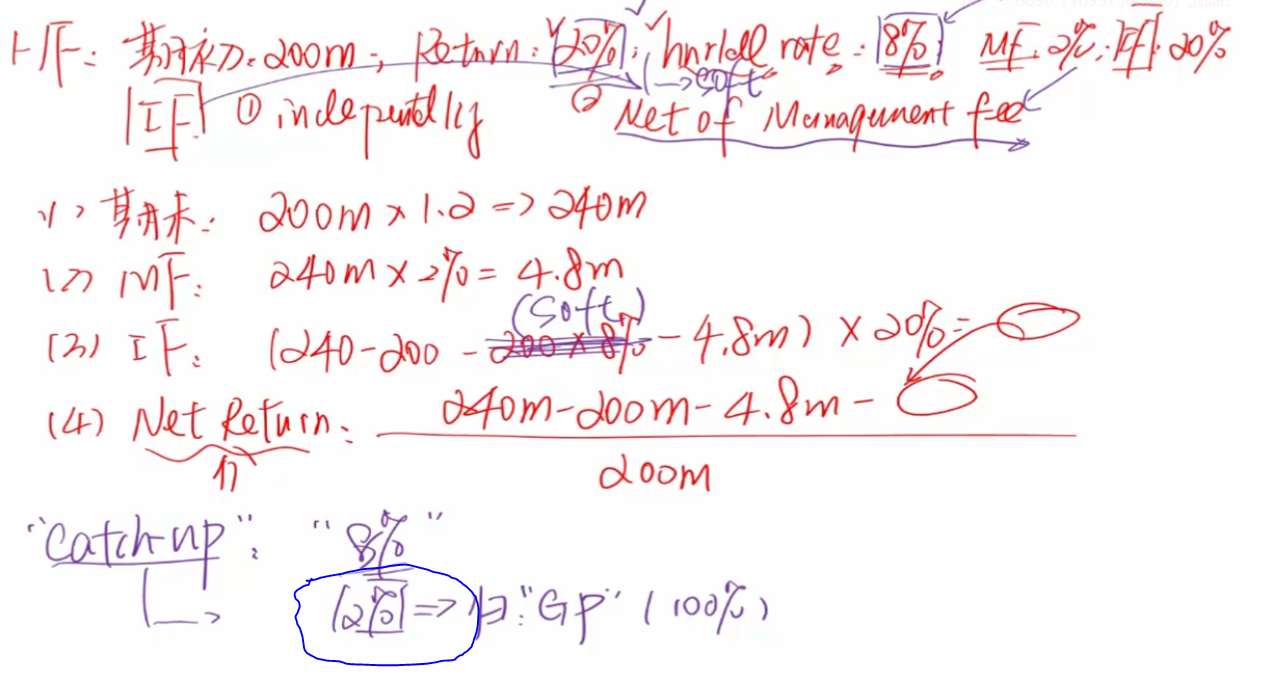 HF: 期初: 200m; Return: 20%; hurdle rate: 8% MF: 2%; IF: 20%
IF ① independtly ② └→soft Net of Management fee
(1) 期末: 200m × 1.2 => 240m
(2) MF: 240m × 2% = 4.8m
(soft)
(3) IF: (240-200 - 200 × 8% - 4.8m) × 20% =
(4) Net Return: 240m-200m-4.8m-
200m
"catch-up": "8%"
2% => 归:"GP" (100%)